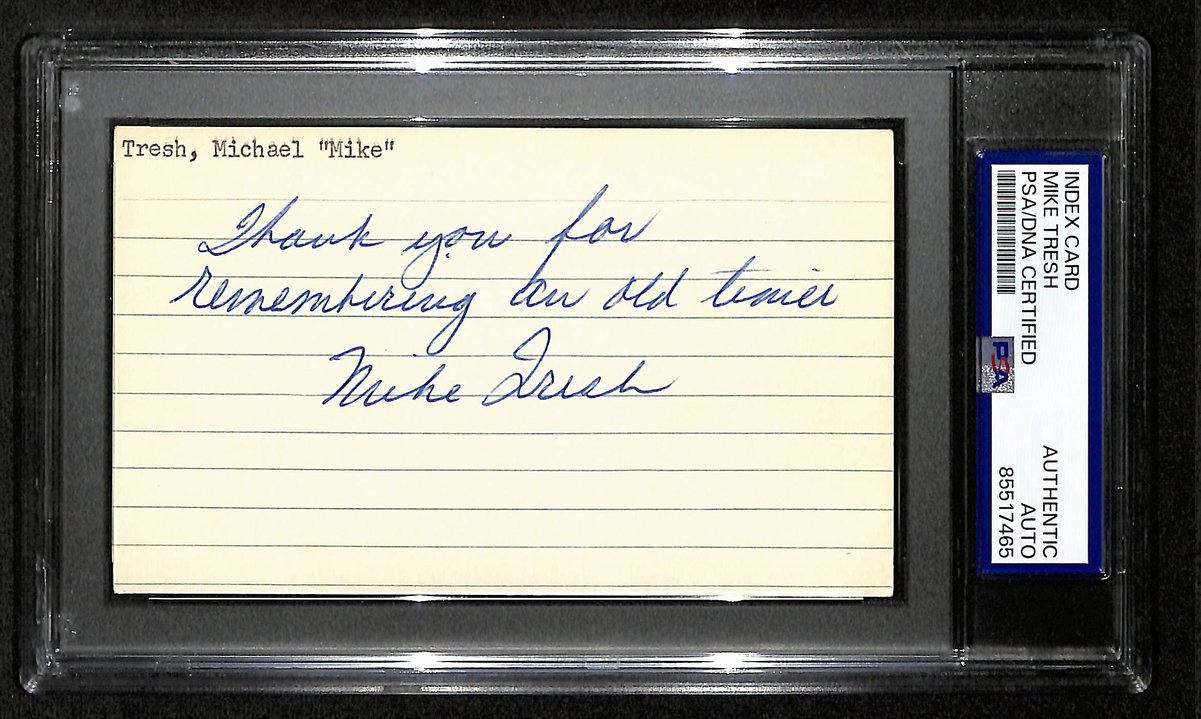 Tresh, Michael "Mike"
Thank you for
remembering an old timer
Mike Tresh
INDEX CARD
MIKE TRESH
PSA/DNA CERTIFIED
AUTHENTIC
AUTO
85517465
PSA